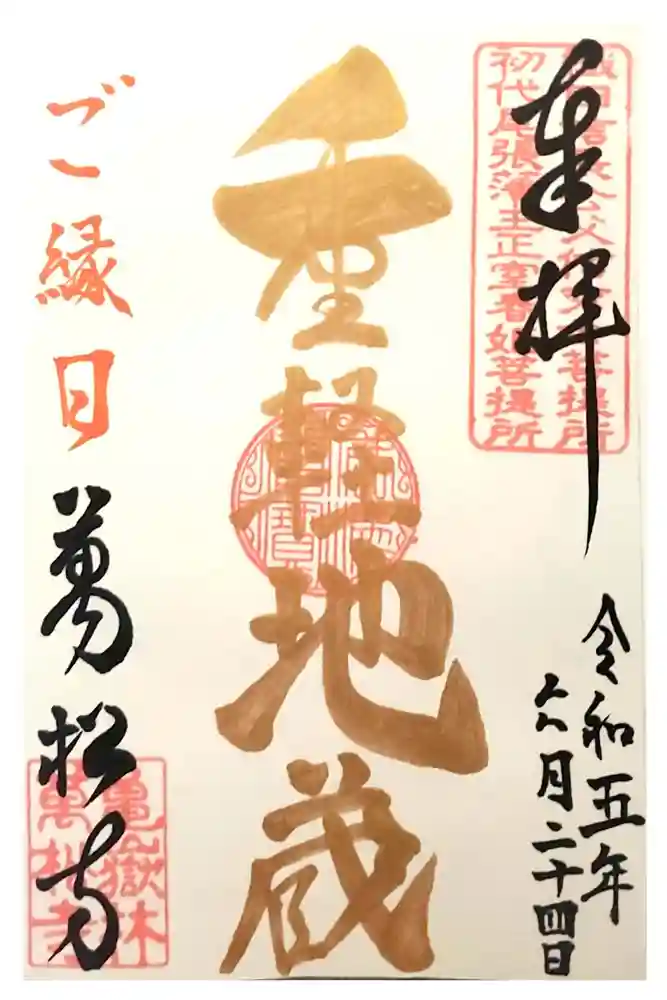 奉拝
織田信長公父信秀公菩提所
初代尾張藩主正室春姫菩提所
令和五年
六月二十四日
重軽地蔵
ご縁日
萬松寺
亀嶽林
萬松寺